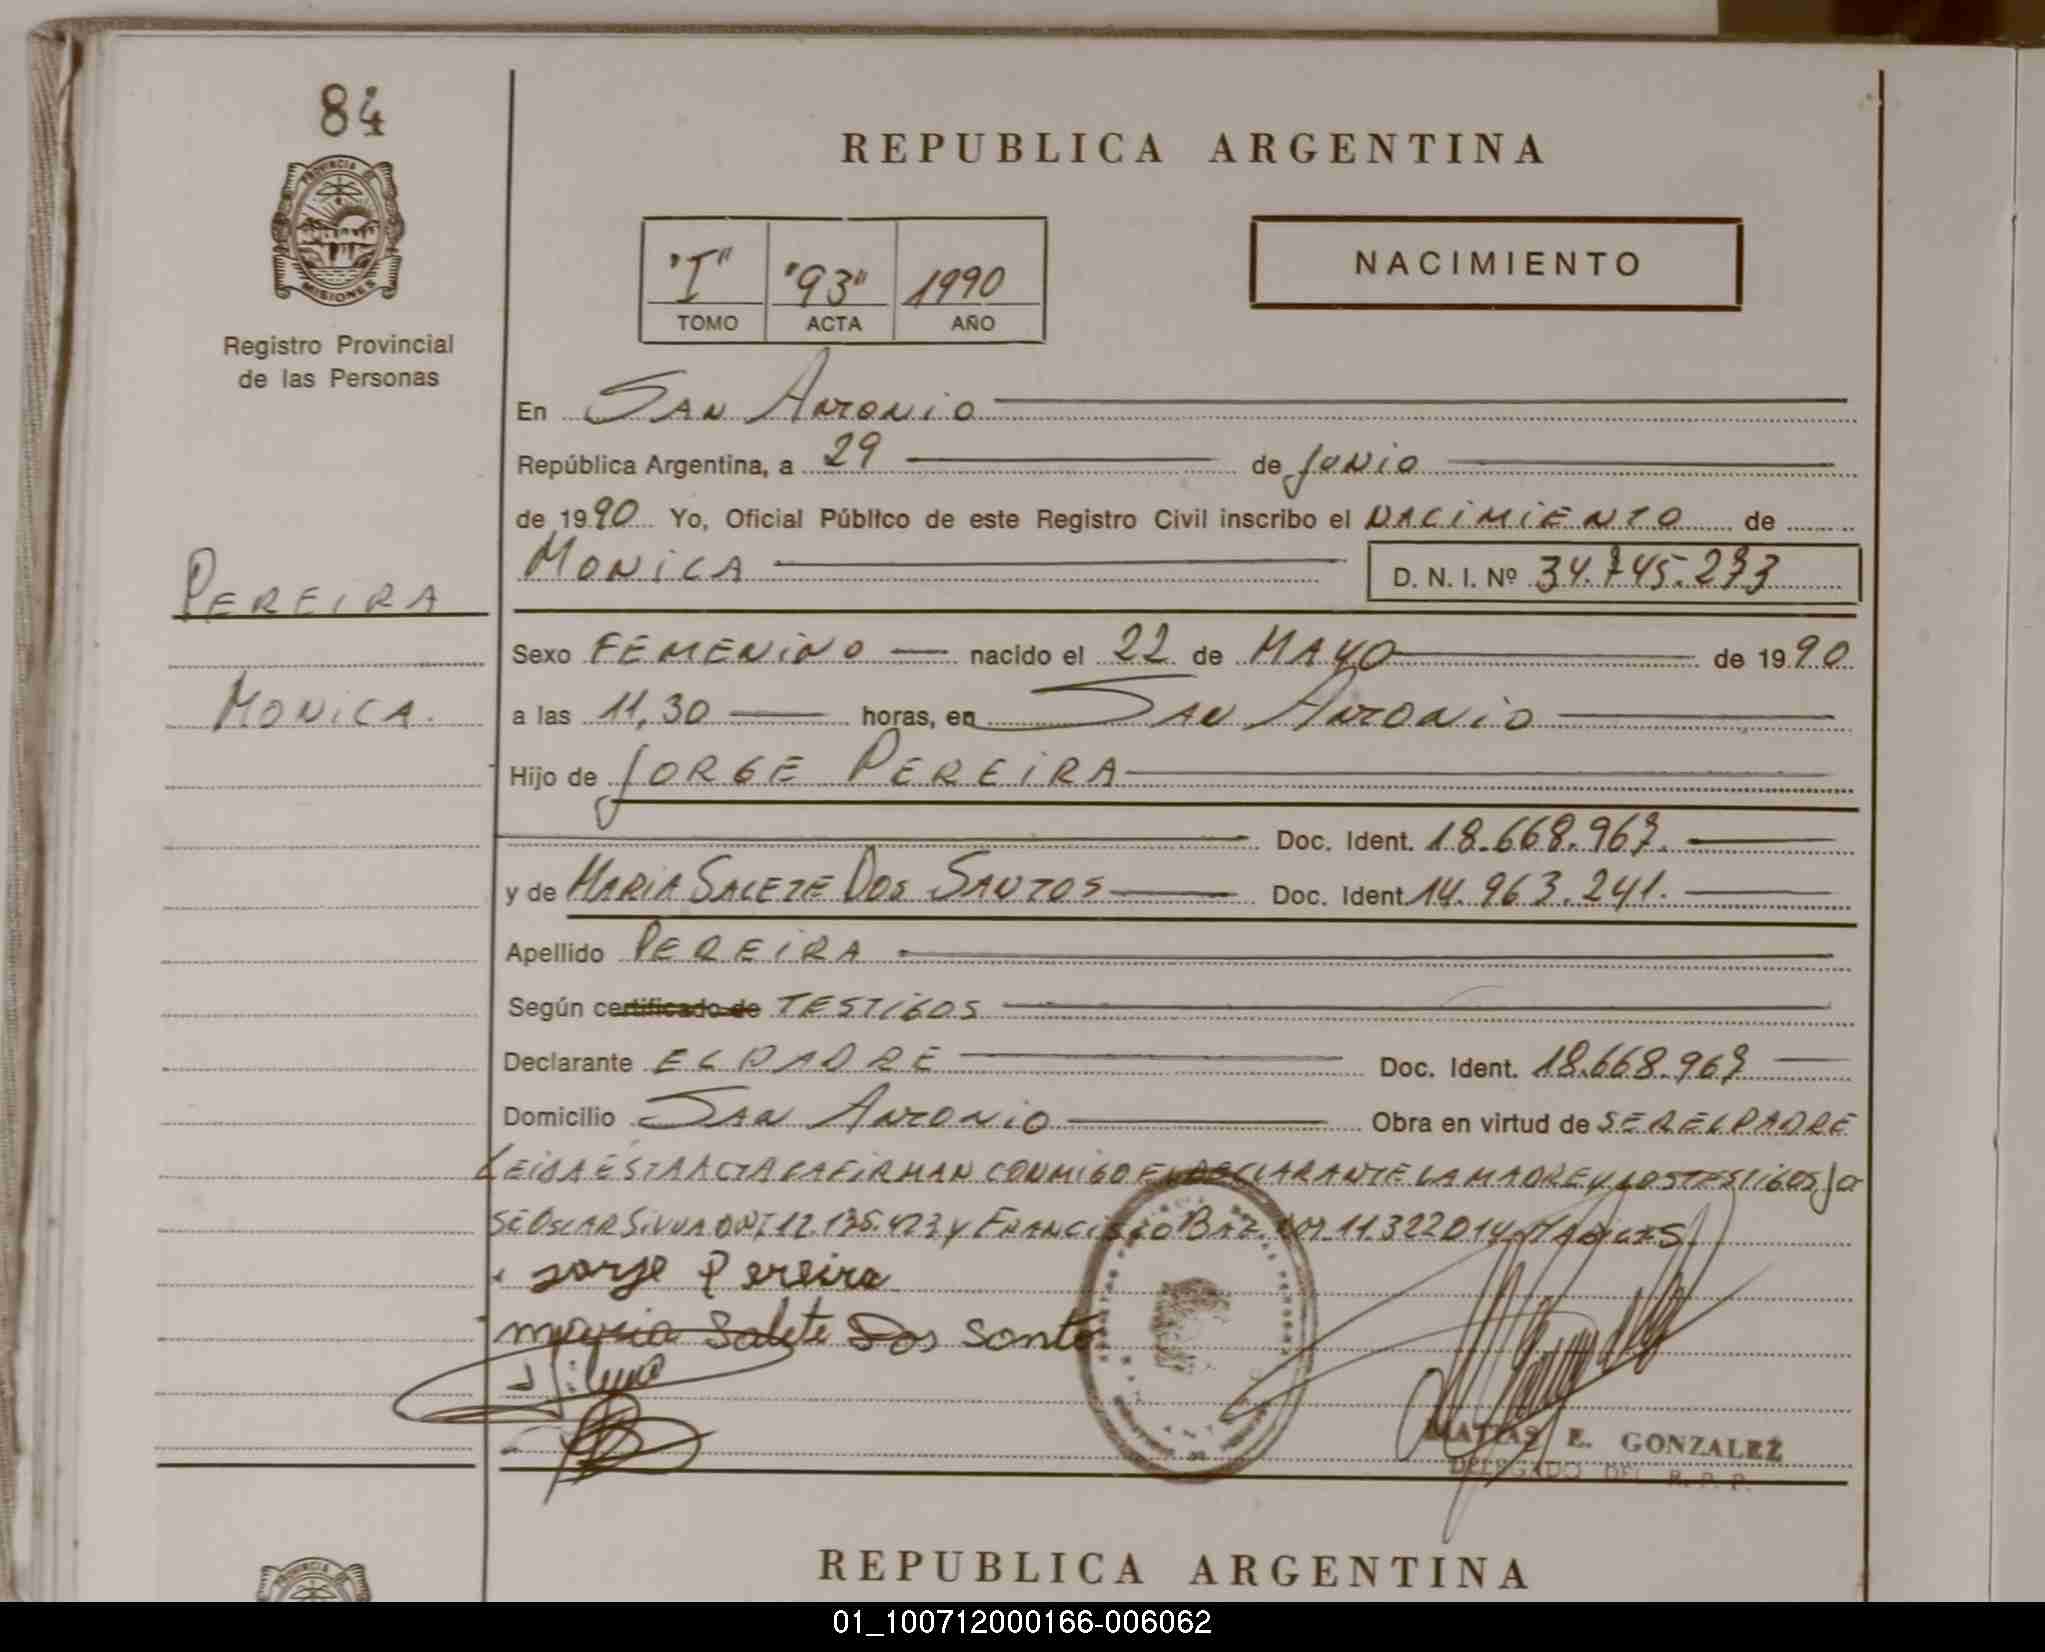 84
PROVINCIA DE
MISIONES
Registro Provincial
de las Personas
REPUBLICA ARGENTINA
"I" "93" 1990
TOMO ACTA AÑO
NACIMIENTO
En San Antonio
República Argentina, a 29 de Junio
de 1990 Yo, Oficial Público de este Registro Civil inscribo el NACIMIENTO de
MONICA D. N. I. Nº 34.745.277
PEREIRA
Sexo FEMENINO nacido el 22 de MAYO de 1990
MONICA.
a las 11,30 horas, en San Antonio
Hijo de JORGE PEREIRA
Doc. Ident. 18.668.967.
y de MARIA SALETE DOS SANTOS Doc. Ident. 14.963.241.
Apellido PEREIRA
Según certificado de TESTIGOS
Declarante EL PADRE Doc. Ident. 18.668.967
Domicilio San Antonio Obra en virtud de SER EL PADRE
LEIDA ESTA ACTA LA FIRMAN CONMIGO EL DECLARANTE LA MADRE Y LOS TESTIGOS JO
SE OSCAR SILVA DNI 12.195.473 Y FRANCISCO 11.322014
Jorge Pereira
maria Salete Dos Santos
MATIAS E. GONZALEZ
DELEGADO DEL R. P. P.
REPUBLICA ARGENTINA
PROVINCIA
01_100712000166-006062